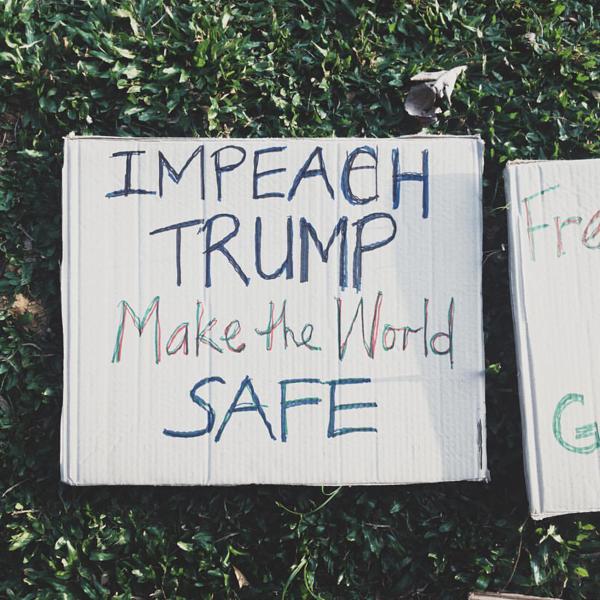 IMPEACH
TRUMP
Make the World
SAFE